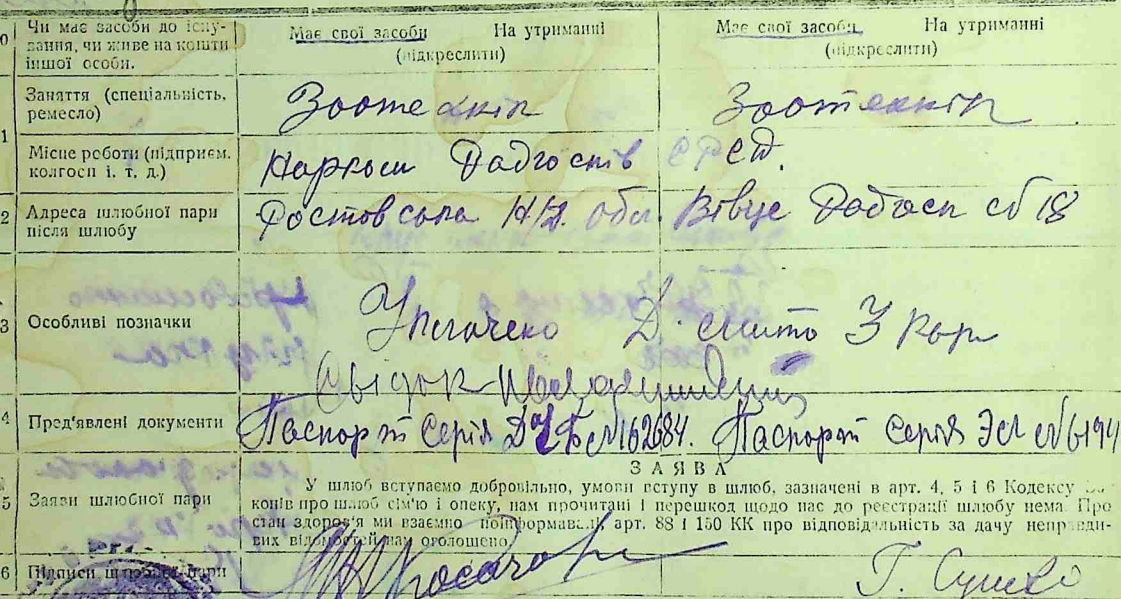 0 Чи має засоби до існу-
вання, чи живе на кошти
іншої особи.
Має свої засоби На утриманні
(підкреслити)
Має свої засоби На утриманні
(підкреслити)
1 Заняття (спеціальність,
ремесло)
Зоотехнік
Зоотехнік
Місце роботи (підприєм.
колгосп і. т, д.)
Нарком Радгоспів СРСР.
2 Адреса шлюбної пари
після шлюбу
Ростовська обл. Вівце Радгосп № 18
3 Особливі позначки
Д.
З
Свідок
4 Пред'явлені документи
Паспорт Серія №162684. Паспорт Серія
ЗАЯВА
5 Заяви шлюбної пари
У шлюб вступаємо добровільно, умови вступу в шлюб, зазначені в арт. 4, 5 і 6 Кодексу За-
конів про шлюб сім'ю і опеку, нам прочитані і перешкод щодо нас до реєстрації шлюбу нема. Про
стан здоров'я ми взаємно поінформовані, арт. 88 і 150 КК про відповідальність за дачу неправди-
вих відомостей нам оголошено.
6 Підписи шлюбної пари
Г.